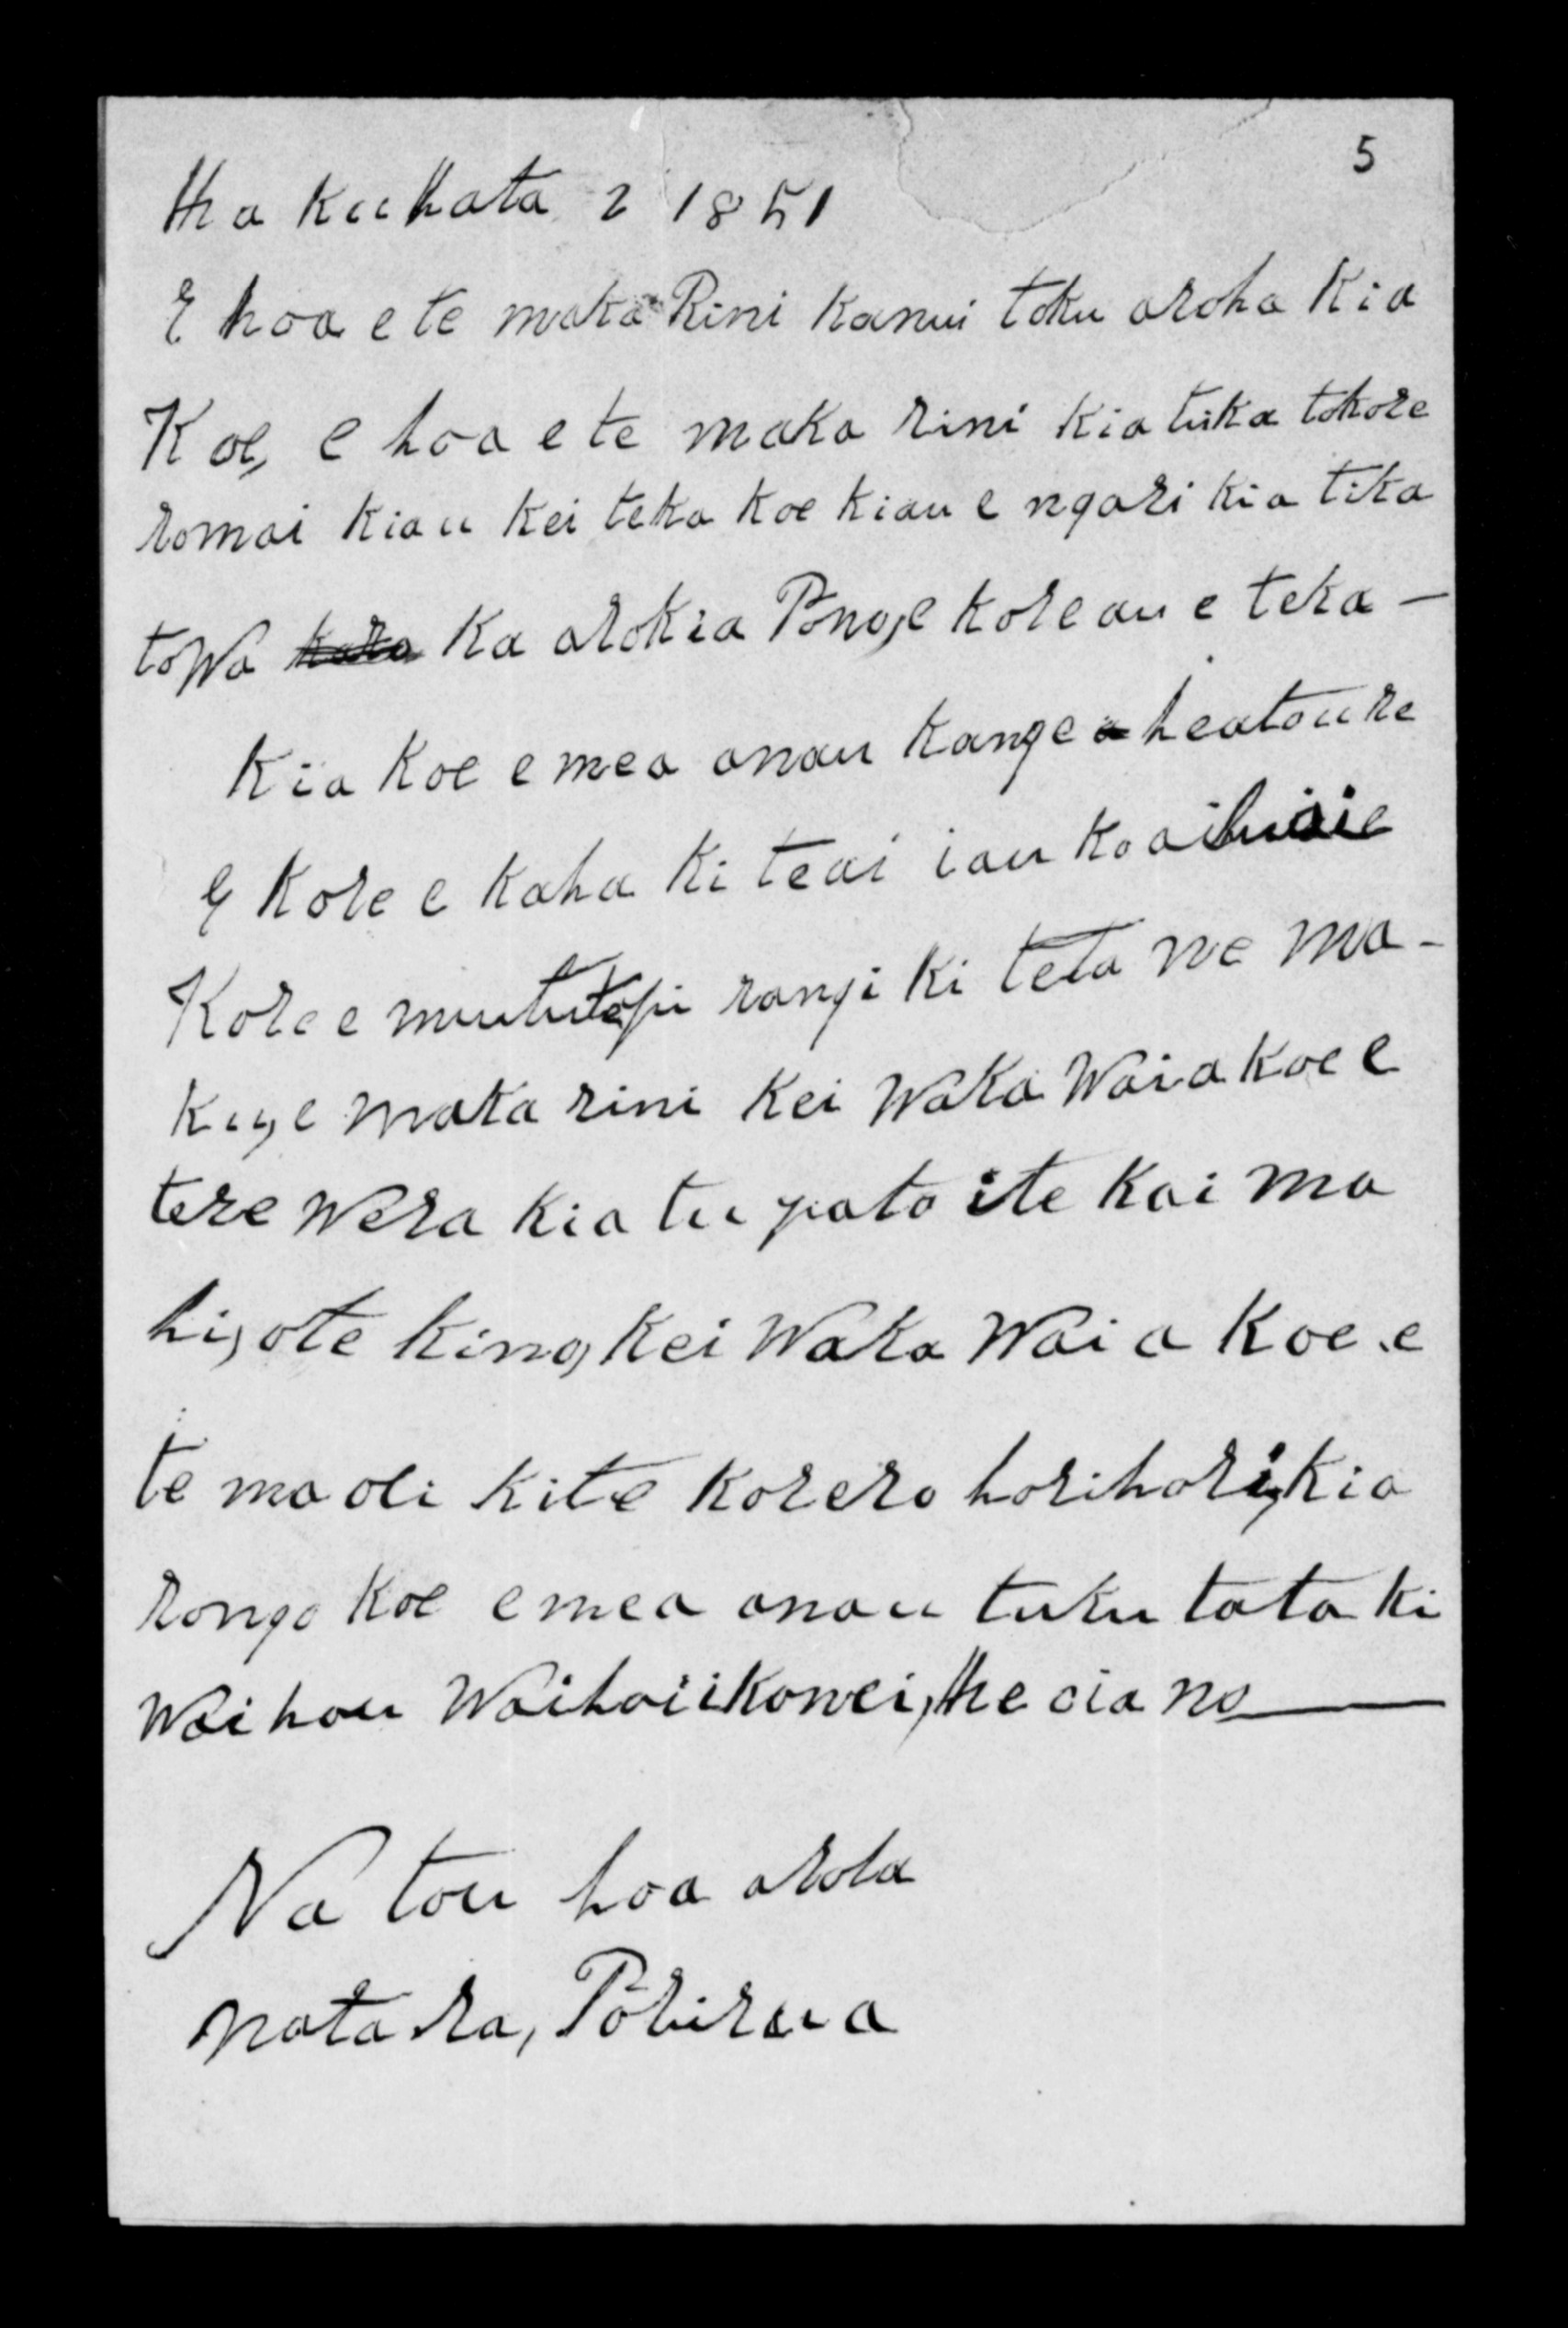 5
Ha Kuhata 2 1851
E hoa e te maka Rini Kanui toku aroha Kia
Koe, e hoa e te maka rini Kia tika tokore
romai Kiau Kei teka Koe Kiau e ngari kia tika
towa Ka arokia Pono, e kore au e teka —
Kia Koe e mea anau Kange heatoure
E Kore e kaha Ki teai iau Koa
Kore e rangi Ki teta ne ma-
Ku, e maka rini Kei Waka Waia Koe e
tere wera Kia tu pato ite Kai ma
hi, ote kino, Kei Waka Wai a Koe e
te ma oli Kite Korero horihori, kia
rongo Koe e mea anau tuku tata Ki
Waihou Waihoiikonei, He oia no
Na tou hoa arola
nata ra, Porirua